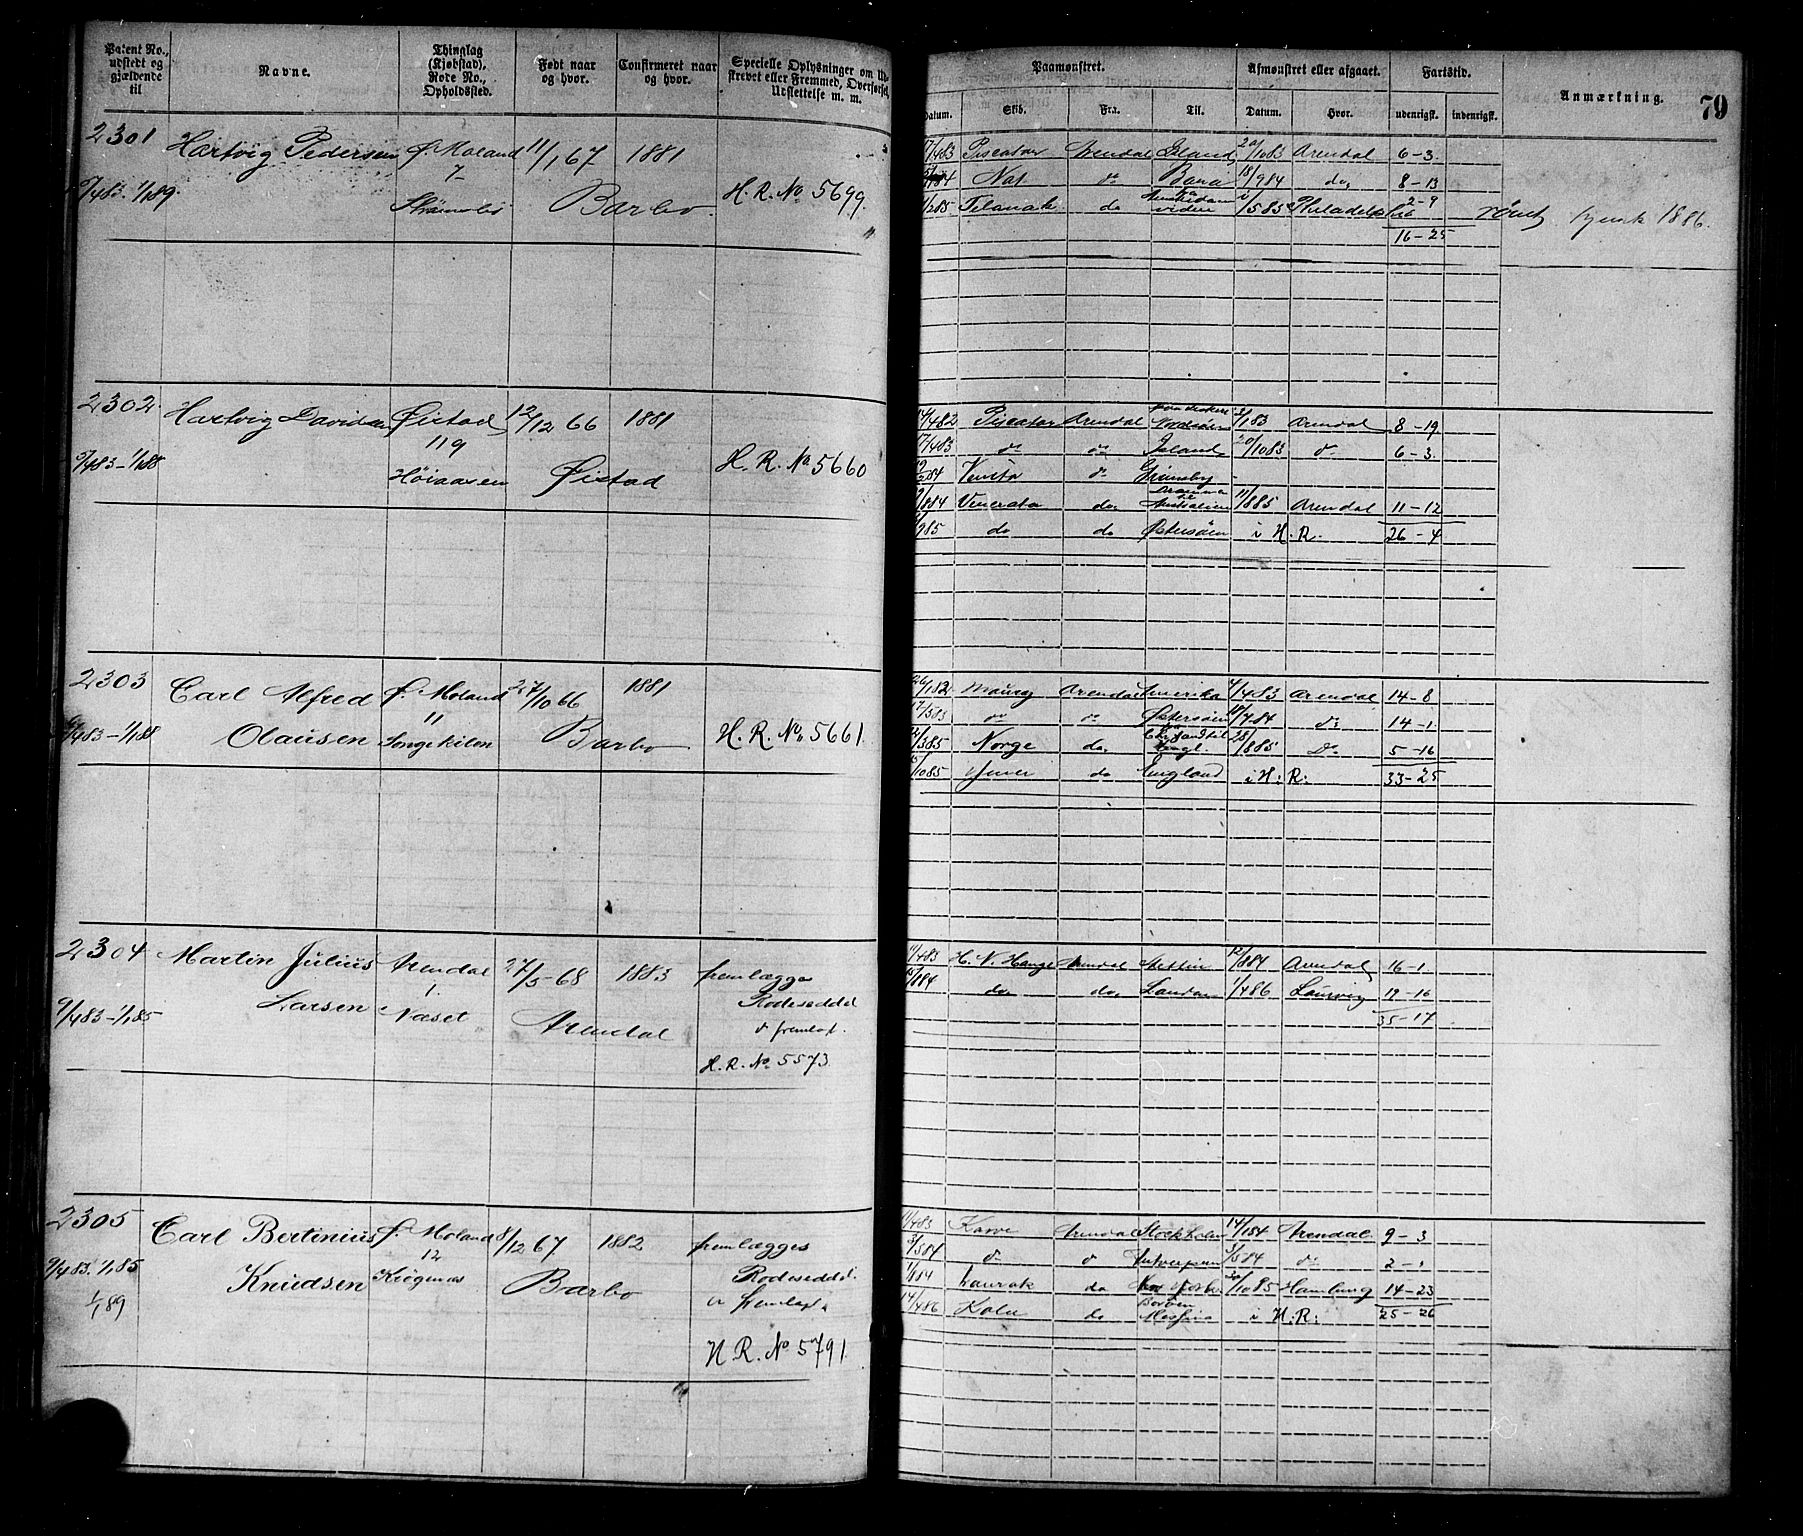 Patent No., udstedt og gjældende til
Navne.
Thinglag (Kjøbstad), Rode No., Opholdssted.
Født naar og hvor.
Confirmeret naar og hvor.
Specielle Oplysninger om Ud-
skrevet eller Fremmed, Overførsel,
Udslettelse m. m.
Paamønstret.
Afmønstret eller afgaaet.
Fartstid.
Anmærkning.
79
Datum. Skib. Fra. Til. Datum. Hvor. udenrigsk. indenrigsk.
2301 Hartvig Pedersen Ø. Moland 11/1 67 1881
7
9/4 83. 1/1 89. Strømsbo Barbo. H. R. No 5699.
17/4 83 Piscator Arendal Island 20/10 83 Arendal 6-3
Nat do 15/9 84 do 8-13
2 85 Telanak do 5 85 Philadelphia 2-9
16-25
1886.
2302 Hartvig Davidsen Øistad 12/12 66 1881
119
9/4 83-1/1 88 Høiaasen Øistad H. R. No 5660
14/4 82 Piscator Arendal 3/1 83 Arendal 8-19
17/4 83 do do Island 20/10 83 do 6-3
84 Vensta do Grimsby
84 Venerata do Australien 11/8 85 Arendal 11-12
9 85 do do Østersøen i H. R. 26-4
2303 Carl Alfred Ø. Moland 27/10 66 1881
11
9/4 83-1/1 88 Olausen Songekilen Barbo H. R. No 5661.
26/1 82 Arendal Amerika 4/4 83 Arendal 14-8
17/5 83 do do Østersøen 18/7 84 do 14-1
3 85 Norge do Engl. 28/8 85 Do 5-16
10 85 Ymer do England i H: R: 33-25
2304 Martin Julius Arendal 27/5-68 1883 fremlægge
1.
9/4 83-1/1 85 Larsen Næset Arendal Rodeseddel
fremlagt.
H. R. No 5573
4 83 H. N. Hauge Arendal Stettin 12/8 84 Arendal 16-1
84 do do London 1/4 86 Laurvig 19-16
35-17
2305 Carl Bertinius Ø. Moland 8/12 67 1882 fremlægges
12
9/4 83. 1/1 85 Knudsen Krøgenes Barbo Rodeseddel.
1/1 89 fremlagt
H. R. No 5791
4 83 Karve Arendal Stockholm 14/1 84 Arendal 9-3
3/5 84 do do Antwerpen 5 84 do 2-1
84 do New York 30/10 85 Hamburg 14-23
14/4 86 do Messina i H: R: 25-26